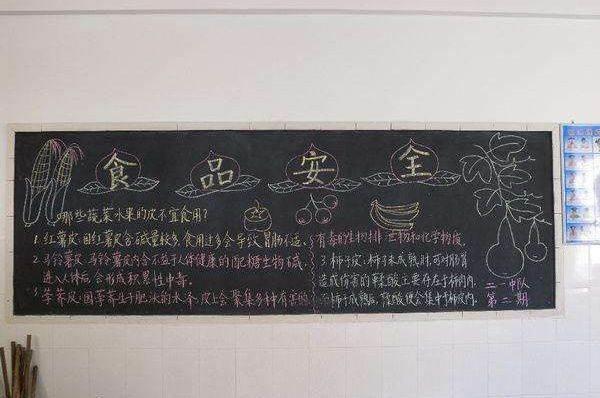 食品安全
哪些蔬菜水果的皮不宜食用?
1.红薯皮:因红薯皮含碱量较多,食用过多会导致胃肠不适。
2.马铃薯皮:马铃薯皮内含不益于人体健康的配糖生物碱,
进入人体后,会形成积累性中毒。
3.荸荠皮:因荸荠生于肥沃的水泽,皮上会聚集多种有害
有毒的生物排泄物和化学物质。
3.柿子皮:柿子未成熟时,可对肠胃
造成伤害的鞣酸主要存在于柿肉内,
而柿子成熟后,鞣酸便会集中于柿皮内。
二一中队
第二期